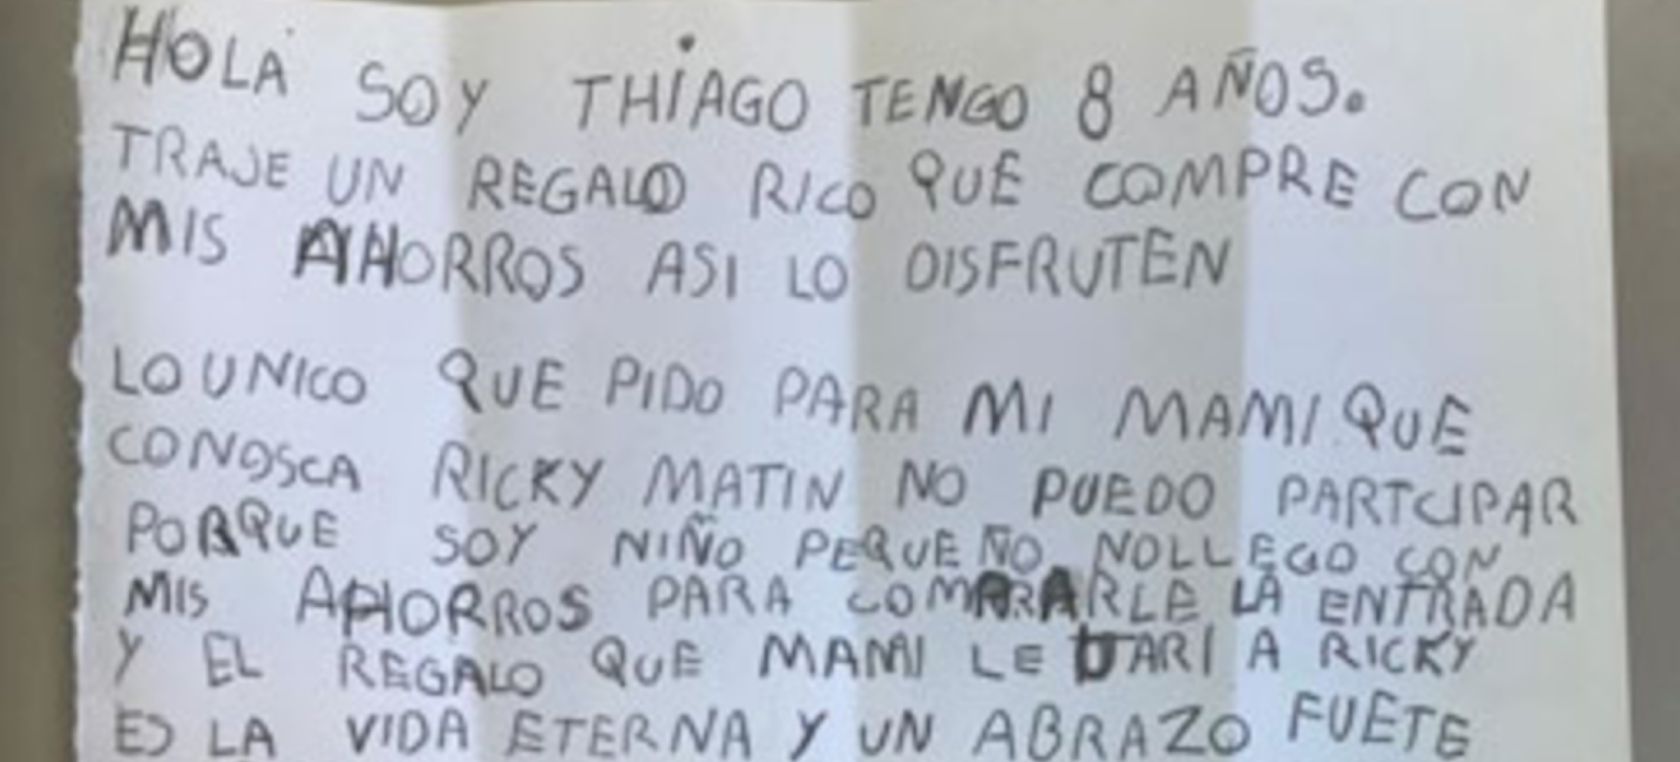 HOLA SOY THIAGO TENGO 8 AÑOS.
TRAJE UN REGALO RICO QUE COMPRE CON
MIS AHORROS ASI LO DISFRUTEN
LO UNICO QUE PIDO PARA MI MAMI QUE
CONOSCA RICKY MATIN NO PUEDO PARTCIPAR
PORQUE SOY NIÑO PEQUEÑO NO LLEGO CON
MIS AHORROS PARA LA ENTRADA
Y EL REGALO QUE MAMI LE DARI A RICKY
ES LA VIDA ETERNA Y UN ABRAZO FUETE